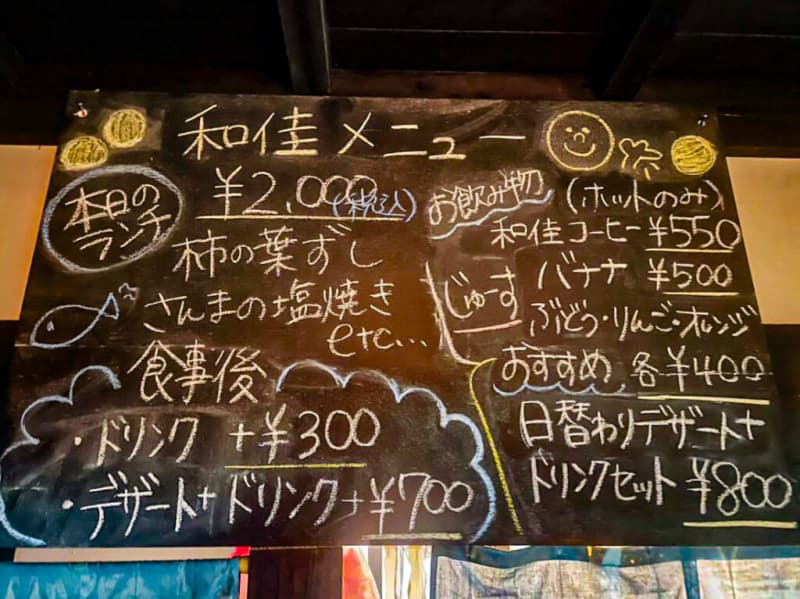 和佳メニュー
本日の
ランチ
¥2,000(税込)
柿の葉ずし
さんまの塩焼き
etc...
食事後
・ドリンク +¥300
・デザート+ドリンク+¥700
お飲み物 (ホットのみ)
和佳コーヒー ¥550
じゅーす
バナナ ¥500
ぶどう・りんご・オレンジ
各¥400
おすすめ
日替わりデザート+
ドリンクセット ¥800